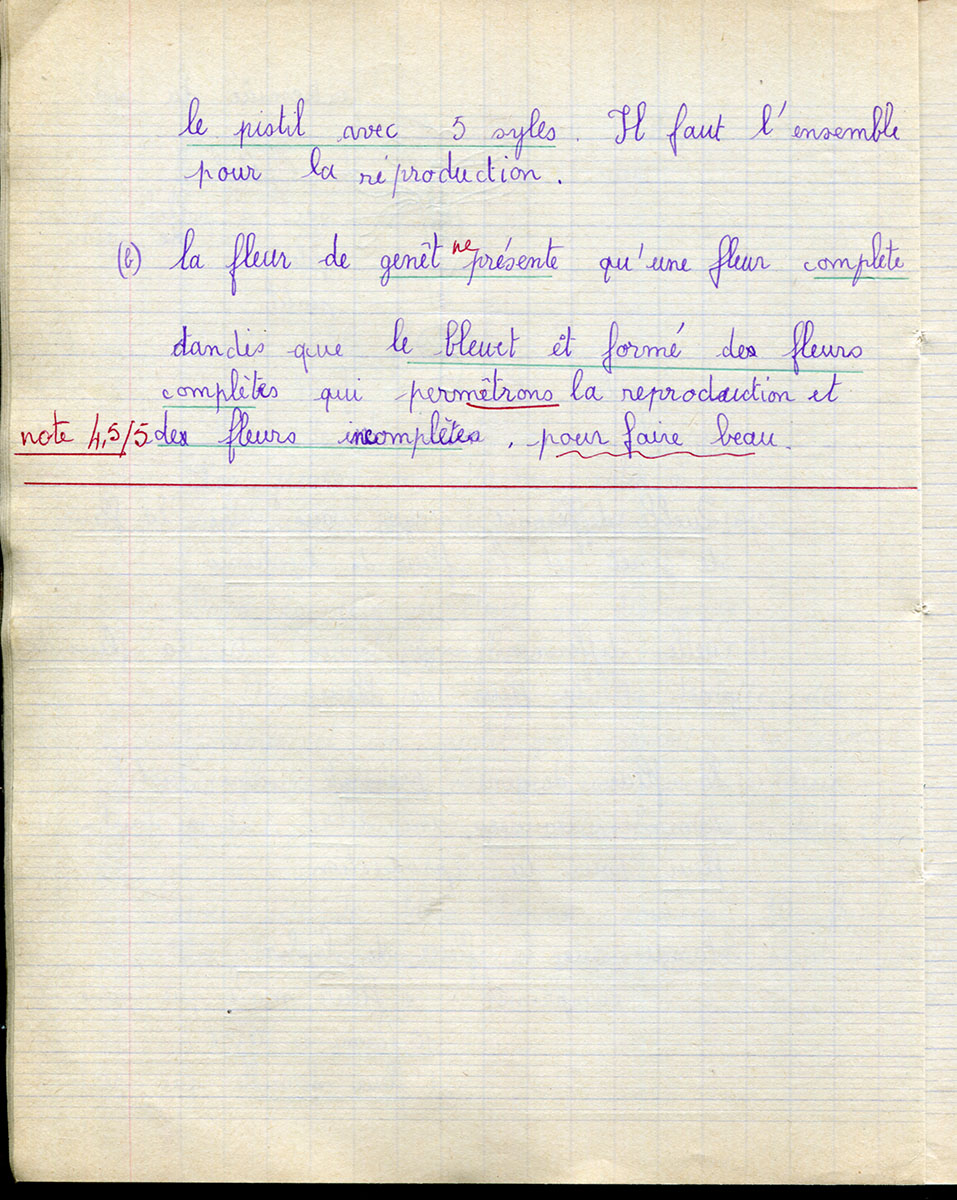 le pistil avec 5 syles. Il faut l'ensemble
pour la réproduction.
(b) la fleur de genêt ne présente qu'une fleur complète
dandis que le bleuet êt formé des fleurs
complètes qui permêtrons la reproduction et
note 4,5/5 des fleurs incomplètes, pour faire beau.